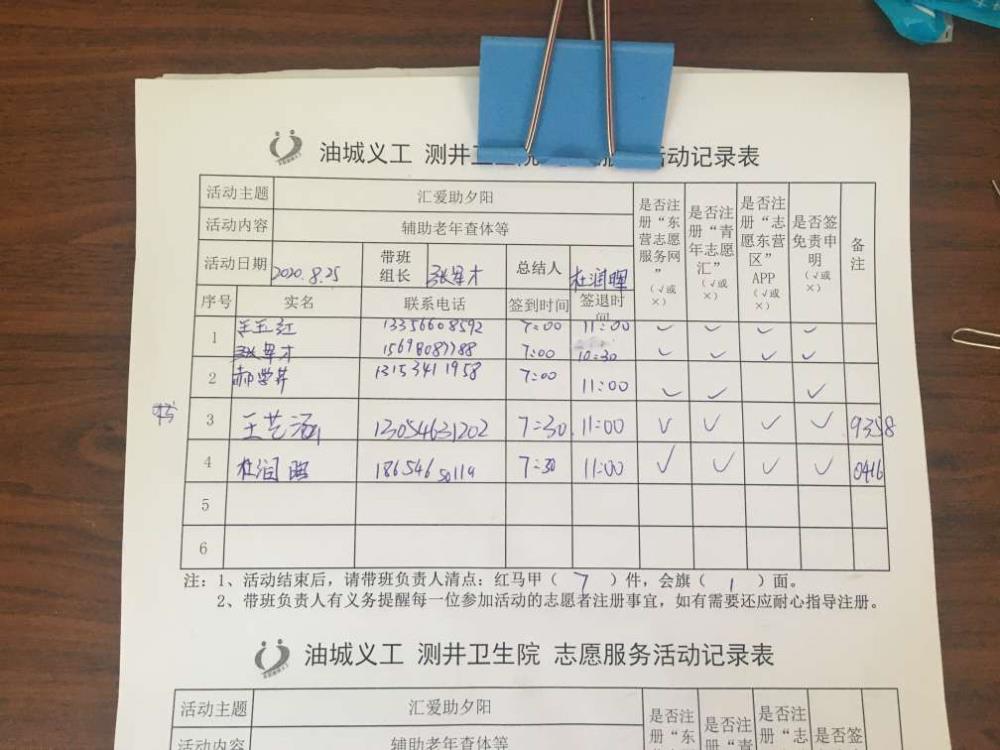 油城义工 测井卫生院 志愿服务活动记录表
活动主题 汇爱助夕阳 是否注册“东营志愿服务网”（√或×） 是否注册“青年志愿汇”（√或×） 是否注册“志愿东营区”APP（√或×） 是否签免责申明（√或×） 备注
活动内容 辅助老年查体等
活动日期 2020.8.25 带班组长 张军才 总结人 杜润晖
序号 实名 联系电话 签到时间 签退时间
1 王玉红 13356608592 7:00 11:00 ✓ ✓ ✓ ✓
张军才 15698087788 7:00 10:30 ✓ ✓ ✓ ✓
2 郝学芹 13153411958 7:00 11:00 ✓ ✓ ✓
3 王艺涵 13054631202 7:30 11:00 ✓ ✓ ✓ ✓ 9358
4 杜润晖 18654650119 7:30 11:00 ✓ ✓ ✓ ✓ 0416
5
6
注：1、活动结束后，请带班负责人清点：红马甲（ 7 ）件，会旗（ 1 ）面。
2、带班负责人有义务提醒每一位参加活动的志愿者注册事宜，如有需要还应耐心指导注册。
油城义工 测井卫生院 志愿服务活动记录表
活动主题 汇爱助夕阳 是否注册“东 是否注册“青 是否注册“志 是否签
活动内容 辅助老年查体等